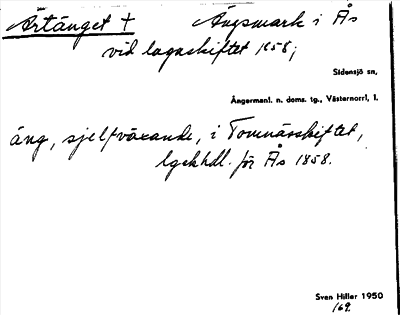 Ärtänget † Ängsmark i Ås
vid lagaskiftet 1858;
Sidensjö sn,
Ångermanl. n. doms. tg., Västernorrl. l.
äng, sjelfväxande, i Tomnärsskiftet,
lgskhdl. för Ås 1858.
Sven Hiller 1950
169.